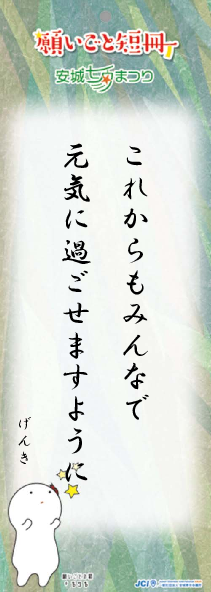 願いごと短冊
安城七夕まつり
これからもみんなで
元気に過ごせますように
げんき
JCI